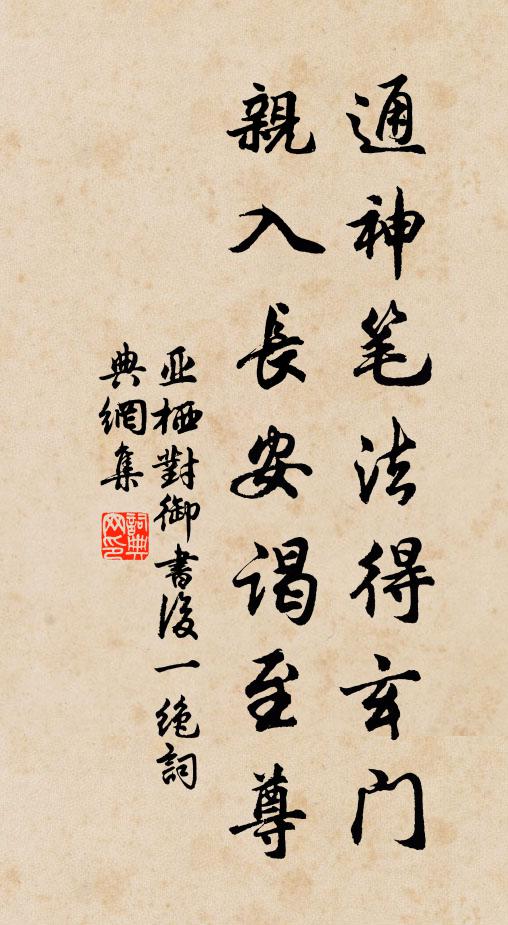 通神笔法得玄门
親入長安謁至尊
亚栖對御書後一絶詞
典網集
詞典網印